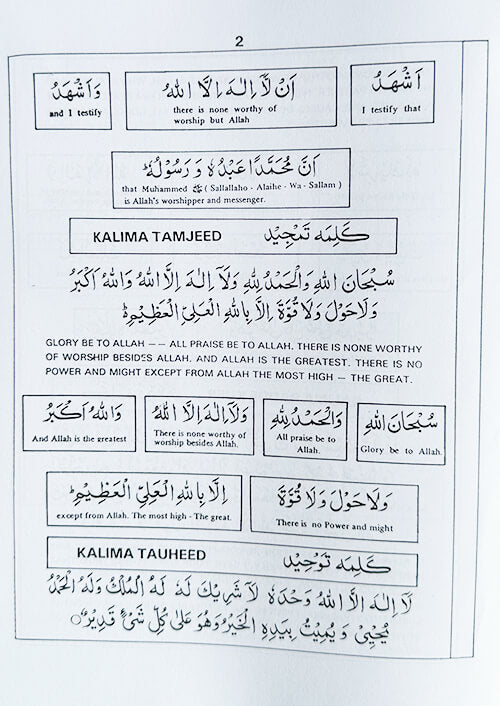 2
اَشْهَدُ
I testify that
اَنْ لَّاۤ اِلٰهَ اِلَّا اللهُ
there is none worthy of
worship but Allah
وَاَشْهَدُ
and I testify
اَنَّ مُحَمَّدًا عَبْدُهٗ وَ رَسُوْلُهٗ
that Muhammed ﷺ ( Sallallaho - Alaihe - Wa - Sallam )
is Allah's worshipper and messenger.
KALIMA TAMJEED كَلِمَه تَمْجِيْد
سُبْحَانَ اللهِ وَالْحَمْدُ لِلّٰهِ وَلَاۤ اِلٰهَ اِلَّا اللهُ وَاللهُ اَكْبَرُ
وَلَاحَوْلَ وَلَا قُوَّةَ اِلَّا بِاللهِ الْعَلِيِّ الْعَظِيْمِ ط
GLORY BE TO ALLAH — — ALL PRAISE BE TO ALLAH. THERE IS NONE WORTHY
OF WORSHIP BESIDES ALLAH. AND ALLAH IS THE GREATEST. THERE IS NO
POWER AND MIGHT EXCEPT FROM ALLAH THE MOST HIGH — THE GREAT.
سُبْحَانَ اللهِ
Glory be to Allah.
وَالْحَمْدُ لِلّٰهِ
All praise be to
Allah.
وَلَاۤ اِلٰهَ اِلَّا اللهُ
There is none worthy of
worship besides Allah.
وَاللهُ اَكْبَرُ
And Allah is the greatest
وَلَاحَوْلَ وَلَا قُوَّةَ
There is no Power and might
اِلَّا بِاللهِ الْعَلِيِّ الْعَظِيْمِ ط
except from Allah. The most high - The great.
KALIMA TAUHEED كَلِمَه تَوْحِيْد
لَاۤ اِلٰهَ اِلَّا اللهُ وَحْدَهٗ لَا شَرِيْكَ لَهٗ لَهُ الْمُلْكُ وَلَهُ الْحَمْدُ
يُحْيِيْ وَ يُمِيْتُ بِيَدِهِ الْخَيْرُ وَهُوَ عَلٰى كُلِّ شَيْءٍ قَدِيْرٌ